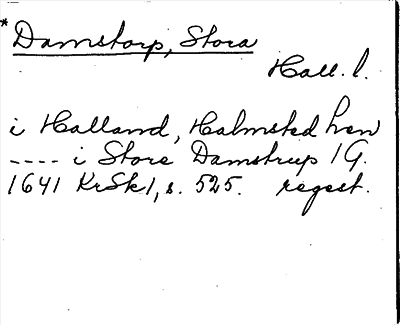 *Damstorp, Stora
Hall. l.
i Halland, Halmsted Len
---- i Store Damstrup 1 G.
1641 KrSk1, s. 525. regest.